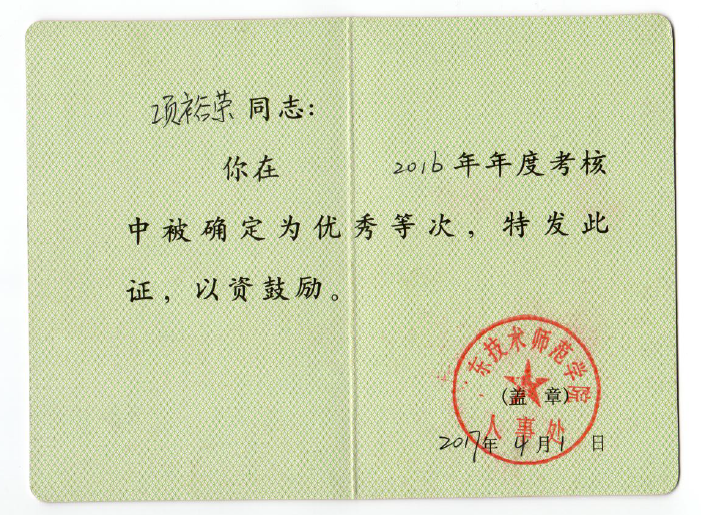 项裕荣同志：
你在 2016年年度考核
中被确定为优秀等次，特发此
证，以资鼓励。
东技术师范学院
（盖 章）
人事处
2017年4月1日